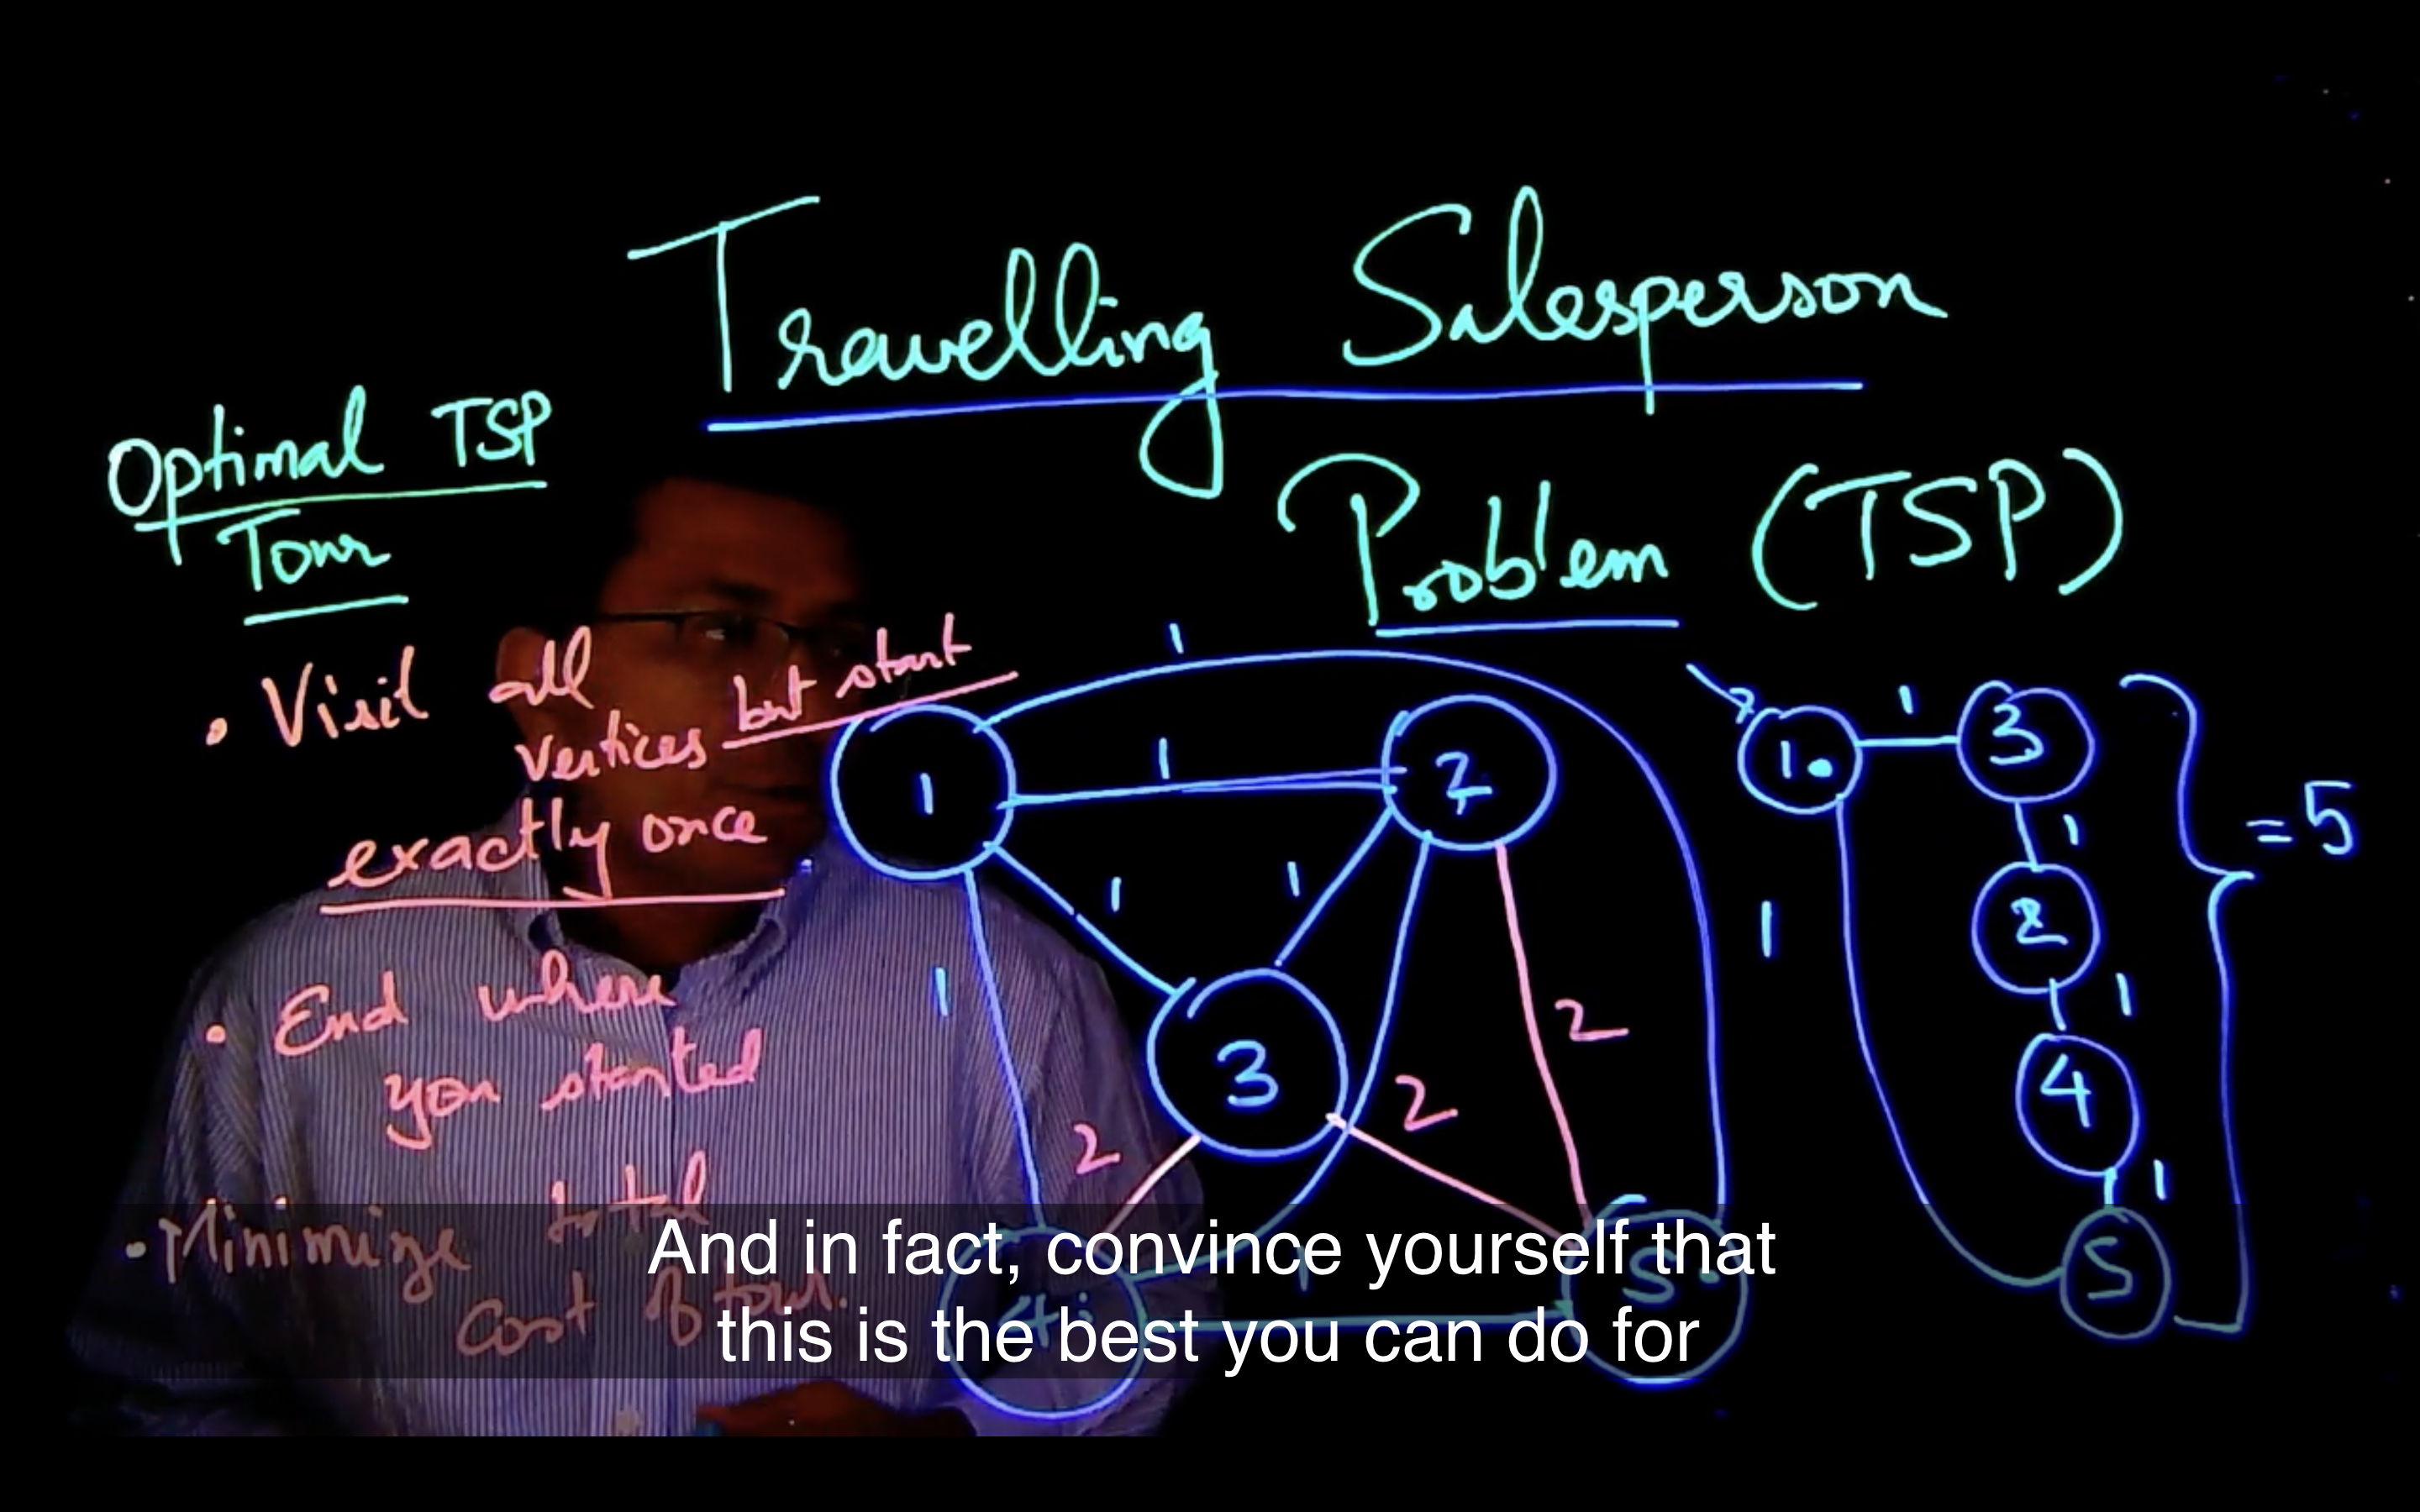 Travelling Salesperson
Problem (TSP)
Optimal TSP
Tour
• Visit all
vertices but start
exactly once
• End where
you started
• Minimize total
cost of tour.
1
1
1
2
1
1
1
3
2
2
2
4
1
5
1
1
3
= 5
1
2
1
1
4
1
5
And in fact, convince yourself that
this is the best you can do for